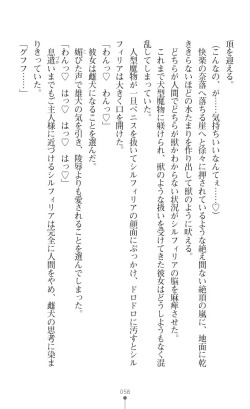 頂を迎える。
(こんなの、が……気持ちいいなんてぇ……♡)
快楽の奈落へ落ちる崖へと徐々に押されているような絶え間ない絶頂の嵐に、地面に乾
ききらないほどの水たまりを作り出して獣のように吠える。
どちらが人間でどちらが獣かわからない状況がシルフィリアの脳を麻痺させた。
これまで犬型魔物に躾けられ、獣のような扱いを受けてきた彼女はどうしようもなく混
乱してしまっていた。
人型魔物が一旦ペニスを抜いてシルフィリアの顔面にぶっかけ、ドロドロに汚すとシル
フィリアは大きく口を開けた。
「わんっ♡ わんっ♡」
彼女は雌犬になることを選んだ。
媚びた声で雄犬の気を引き、陵辱よりも愛されることを選んでしまった。
「わんっ♡ はっ♡ はっ♡ はっ♡」
息遣いまでもご主人様に近づけるシルフィリアは完全に人間をやめ、雌犬の思考に染ま
りきっていた。
「グフフ……」
056